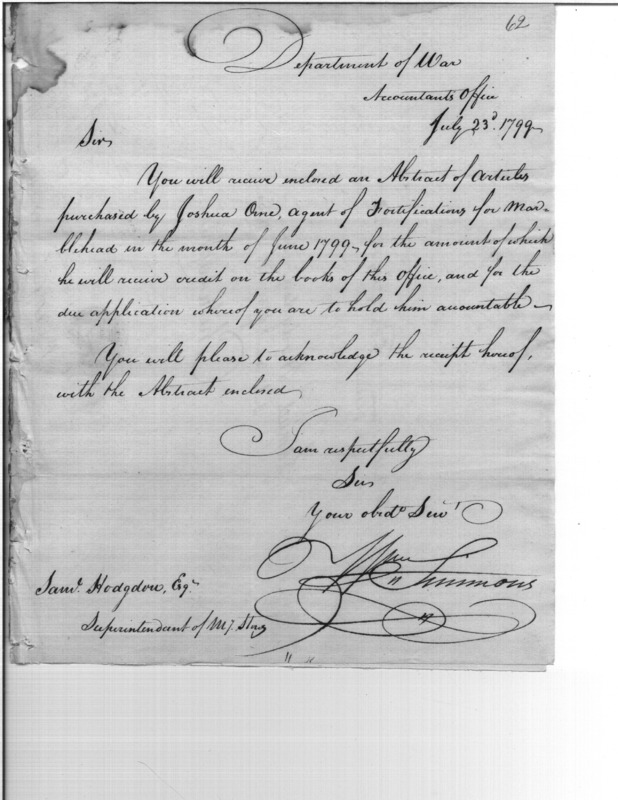 62
Department of War
Accountants Office
July 23d. 1799
Sir
You will receive enclosed an Abstract of Articles
purchased by Joshua Orne, agent of Fortifications for Mar-
blehead in the month of June 1799, for the amount of which
he will receive credit on the books of this Office, and for the
due application whereof you are to hold him accountable
You will please to acknowledge the receipt hereof,
with the Abstract enclosed
I am respectfully
Sir
Your obedt. Servt
Wm Simmons
Saml. Hodgdon, Esqr.
Superintendant of My. Stores